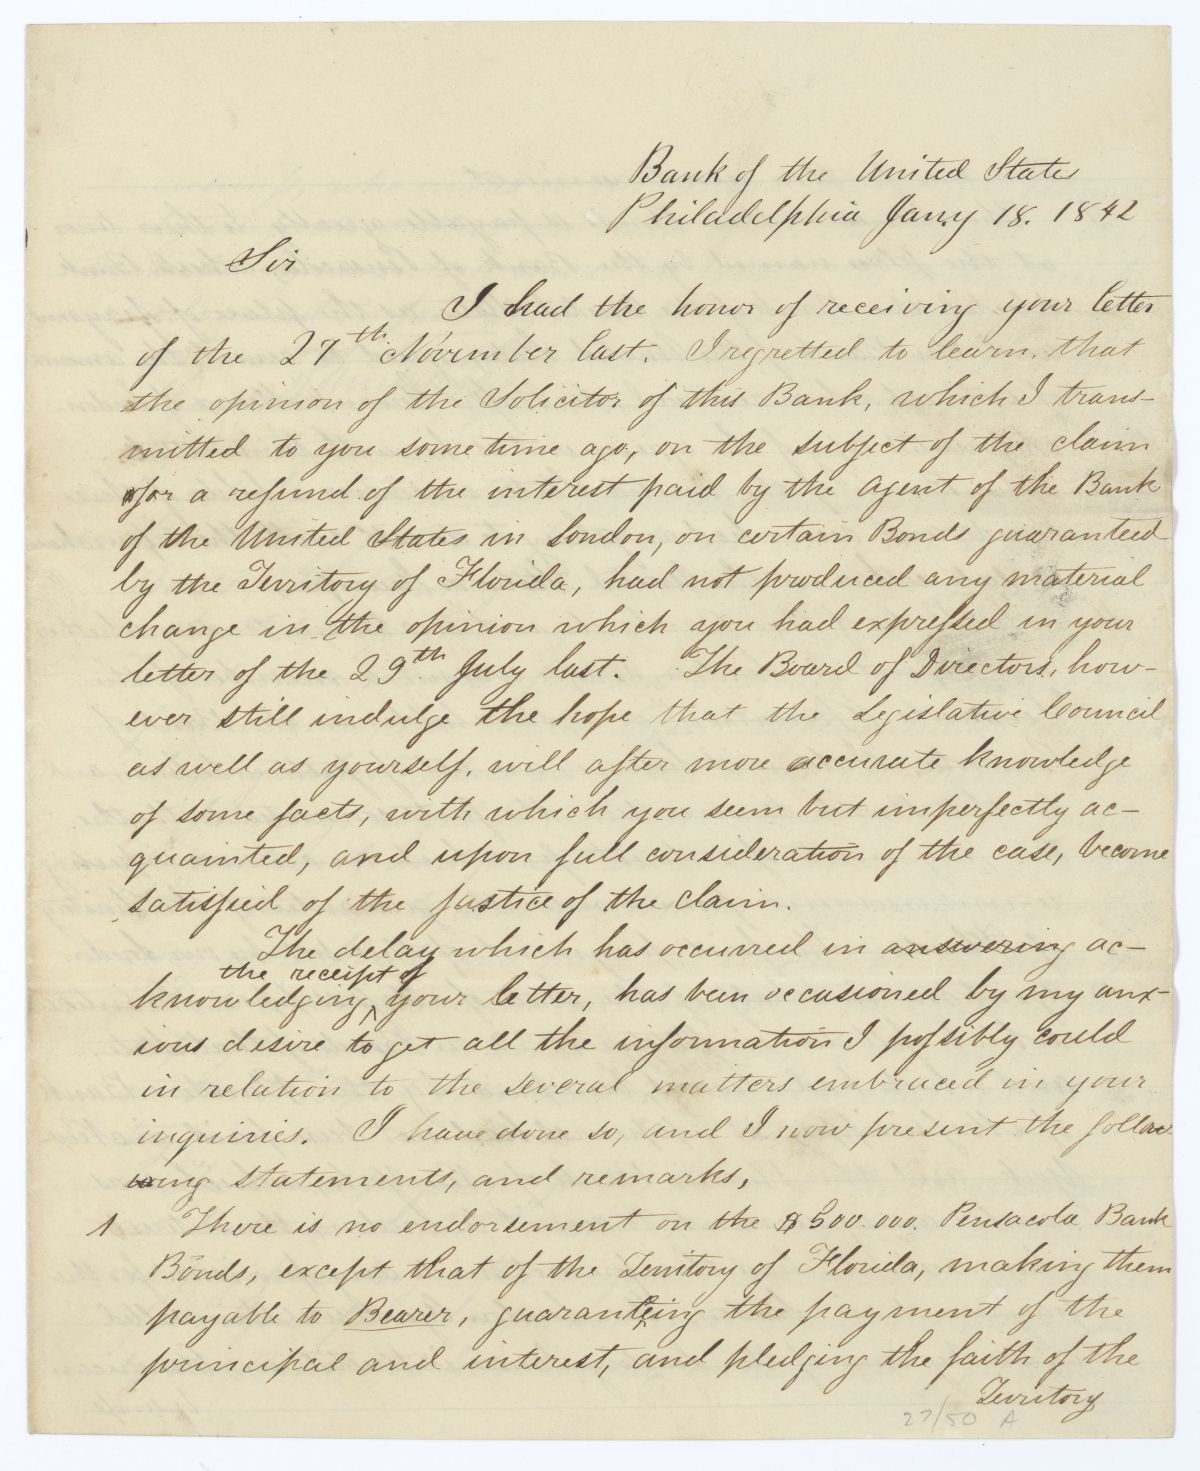 Bank of the United States
Philadelphia Jany 18. 1842
Sir
I had the honor of receiving your letter
of the 27th November last. I regretted to learn that
the opinion of the Solicitor of this Bank, which I trans-
mitted to you some time ago, on the subject of the claim
for a refund of the interest paid by the Agent of the Bank
of the United States in London, on certain Bonds guaranteed
by the Territory of Florida, had not produced any material
change in the opinion which you had expressed in your
letter of the 29th July last. The Board of Directors, how-
ever still indulge the hope that the Legislative Council
as well as yourself, will after more accurate knowledge
of some facts, with which you seem but imperfectly ac-
quainted, and upon full consideration of the case, become
satisfied of the justice of the claim.
The delay which has occurred in answering ac-
the receipt of
knowledging your letter, has been occasioned by my anx-
ious desire to get all the information I possibly could
in relation to the several matters embraced in your
inquiries. I have done so, and I now present the follow-
ing statements, and remarks,
1 There is no endorsement on the $500.000. Pensacola Bank
Bonds, except that of the Territory of Florida, making them
payable to Bearer, guaranteeing the payment of the
principal and interest, and pledging the faith of the
Territory
27/50 A